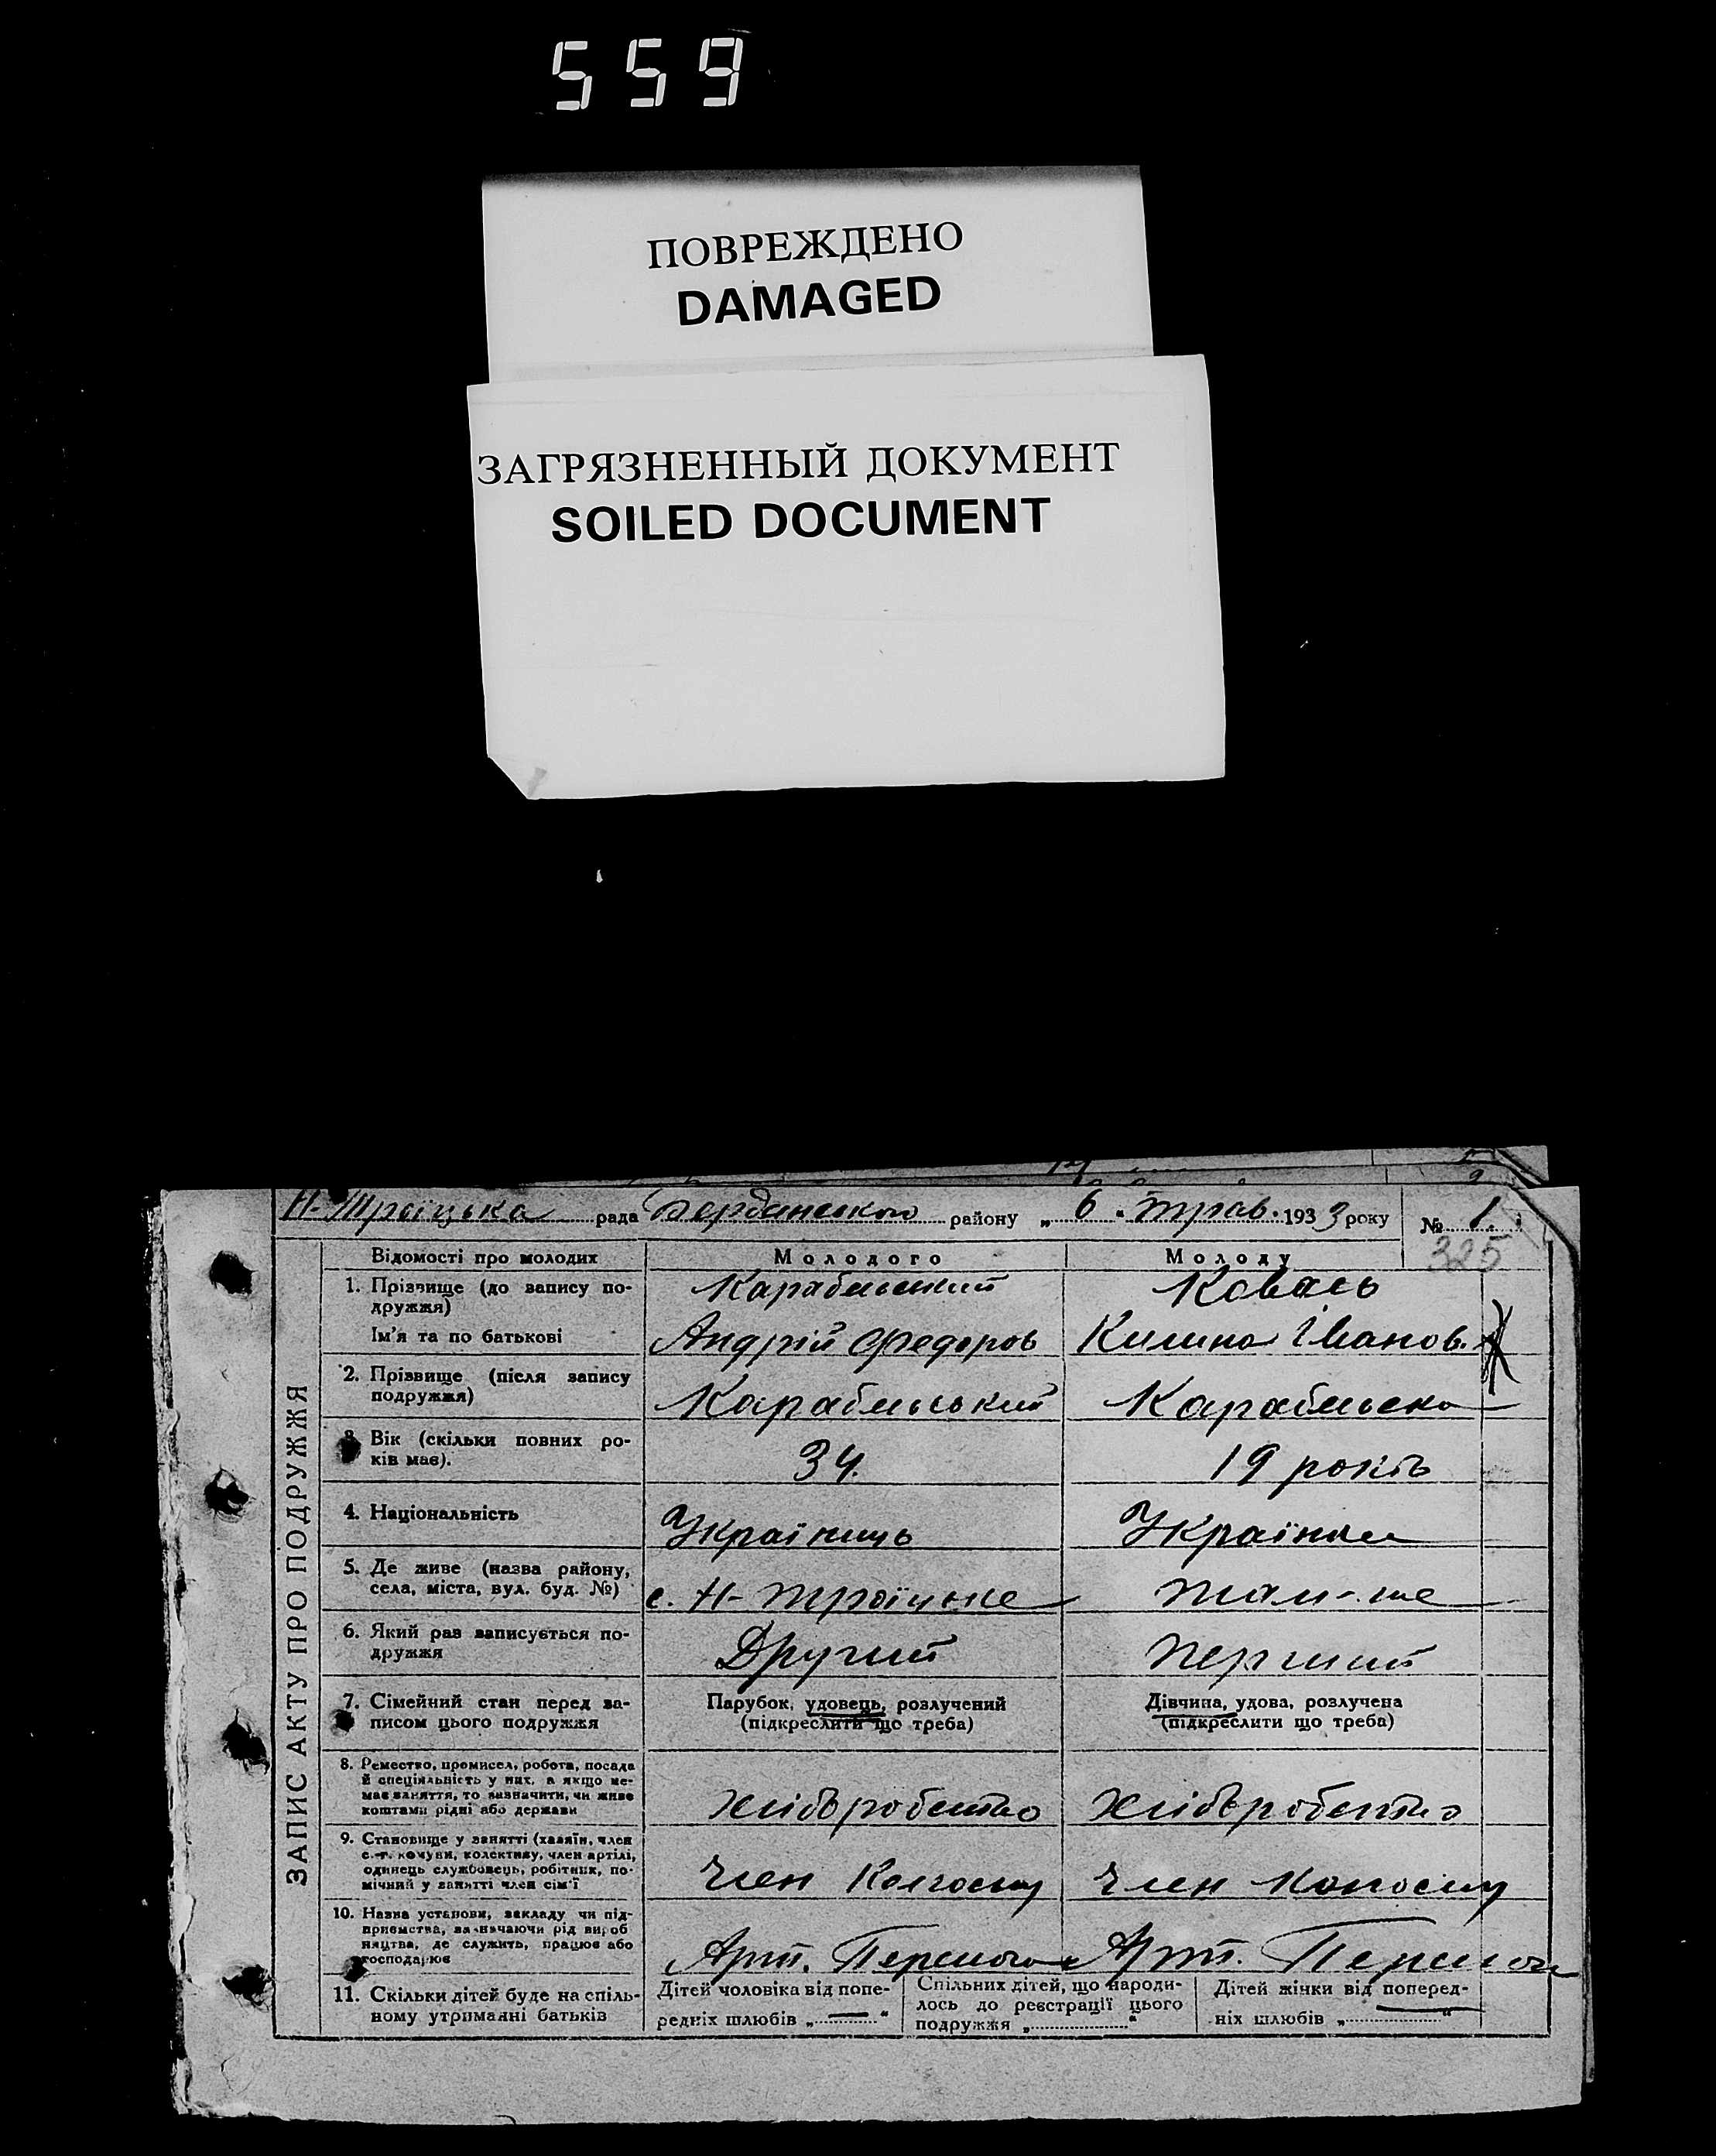 559
ПОВРЕЖДЕНО
DAMAGED
ЗАГРЯЗНЕННЫЙ ДОКУМЕНТ
SOILED DOCUMENT
Н-Троїцька рада Бердянського району „ 6 „ трав. 1933 року № 1.
325
ЗАПИС АКТУ ПРО ПОДРУЖЖЯ
Відомості про молодих Молодого Молоду
1. Прізвище (до запису по-
дружжя)
Карабельский Коваль
Ім'я та по батькові Андрій Федоров Килина Іванов.
2. Прізвище (після запису
подружжя)
Карабельський Карабельска
3. Вік (скільки повних ро-
ків має).
34. 19 років
4. Національність Українць Українка
5. Де живе (назва району,
села, міста, вул. буд. №)
с. Н-Троїцьке там-же
6. Який раз записується по-
дружжя
Другий перший
7. Сімейний стан перед за-
писом цього подружжя
Парубок, удовець, розлучений
(підкреслити що треба)
Дівчина, удова, розлучена
(підкреслити що треба)
8. Ремество, промисел, робота, посада
й спеціяльність у них, а якщо не-
має заняття, то зазначити, чи живе
коштами рідні або держави
хліборобство хліборобство
9. Становище у занятті (хазяїн, член
с.-г. комуни, колективу, член артілі,
одинець службовець, робітник, по-
мічний у занятті член сім'ї
Член Колгоспу Член
10. Назва установи, закладу чи під-
приємства, зазначаючи рід вироб
ництва, де служить, працює або
господарює
Арт. Арт.
11. Скільки дітей буде на спіль-
ному утриманні батьків
Дітей чоловіка від попе-
редніх шлюбів „ — “
Спільних дітей, що народи-
лось до реєстрації цього
подружжя „ “
Дітей жінки від поперед-
ніх шлюбів „ — “